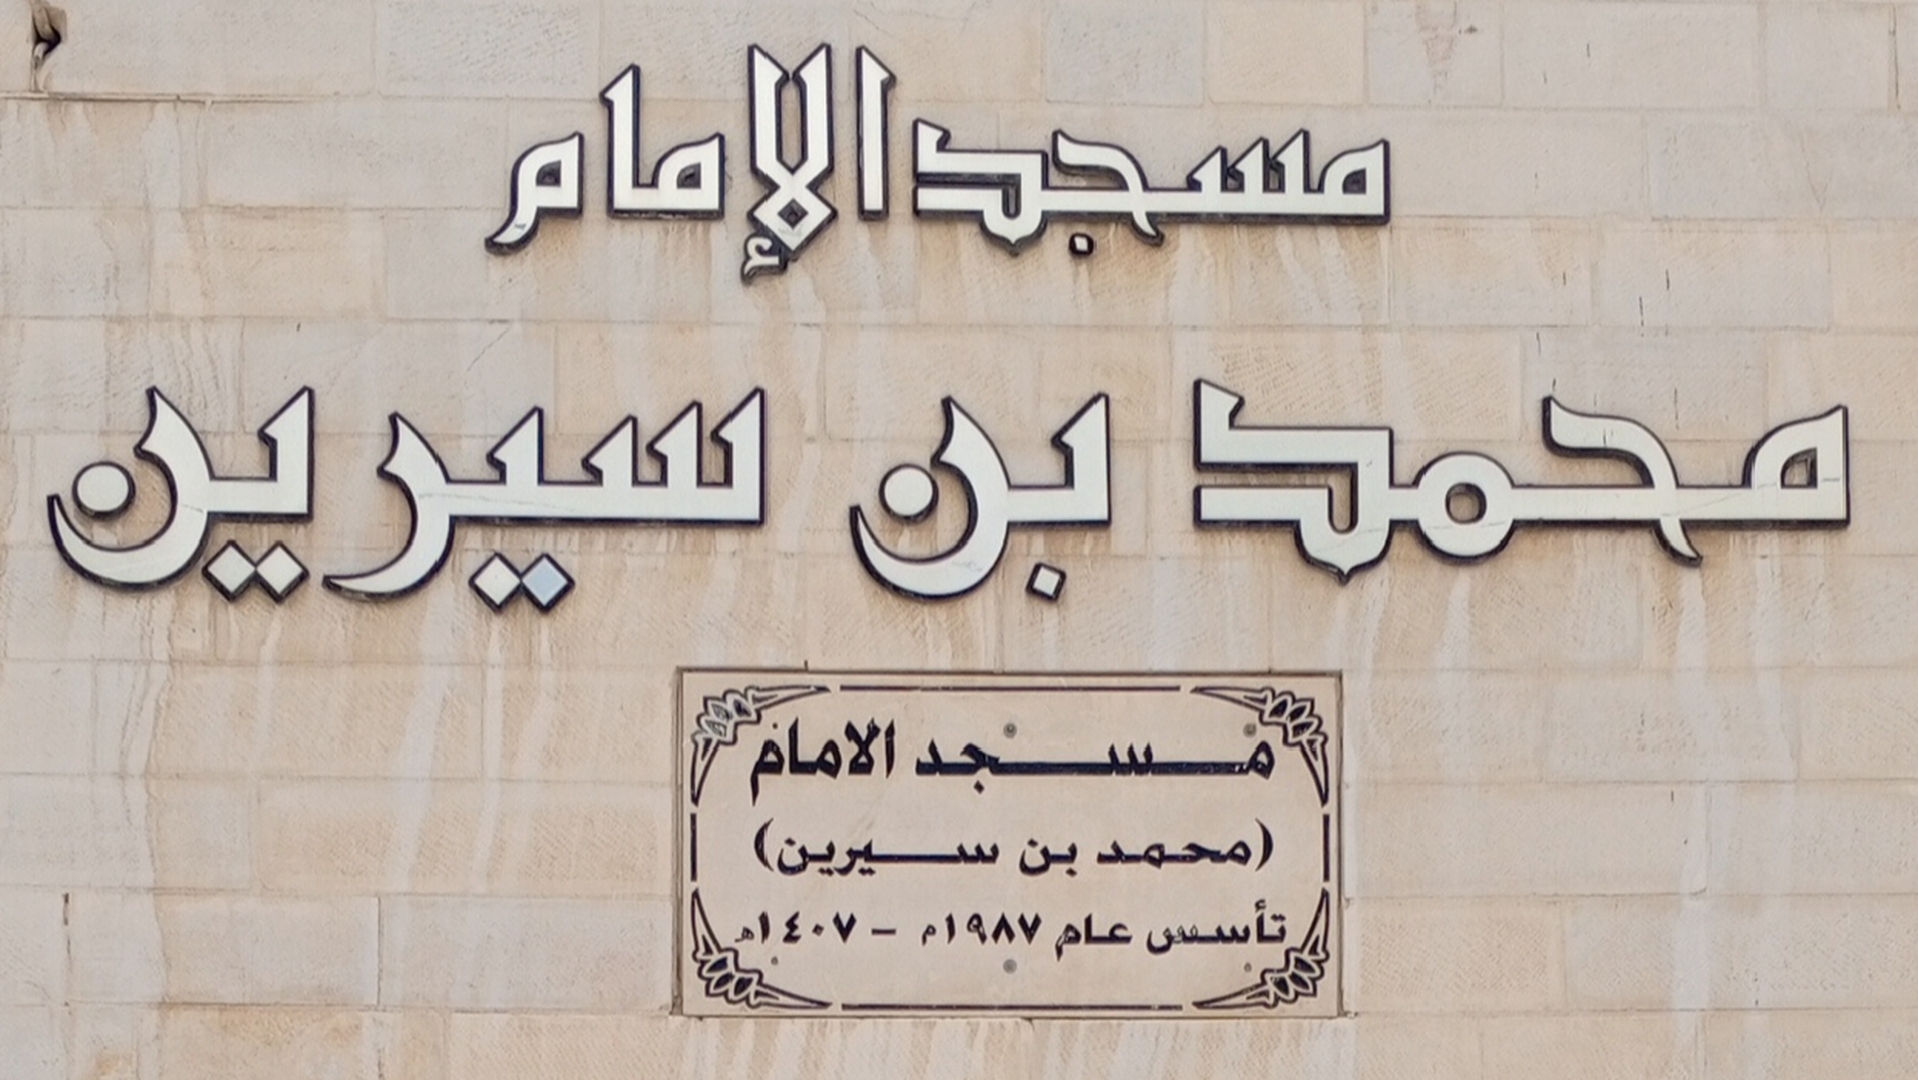 مسجد الإمام
محمد بن سيرين
مسجد الامام
(محمد بن سيرين)
تأسس عام ١٩٨٧م - ١٤٠٧هـ